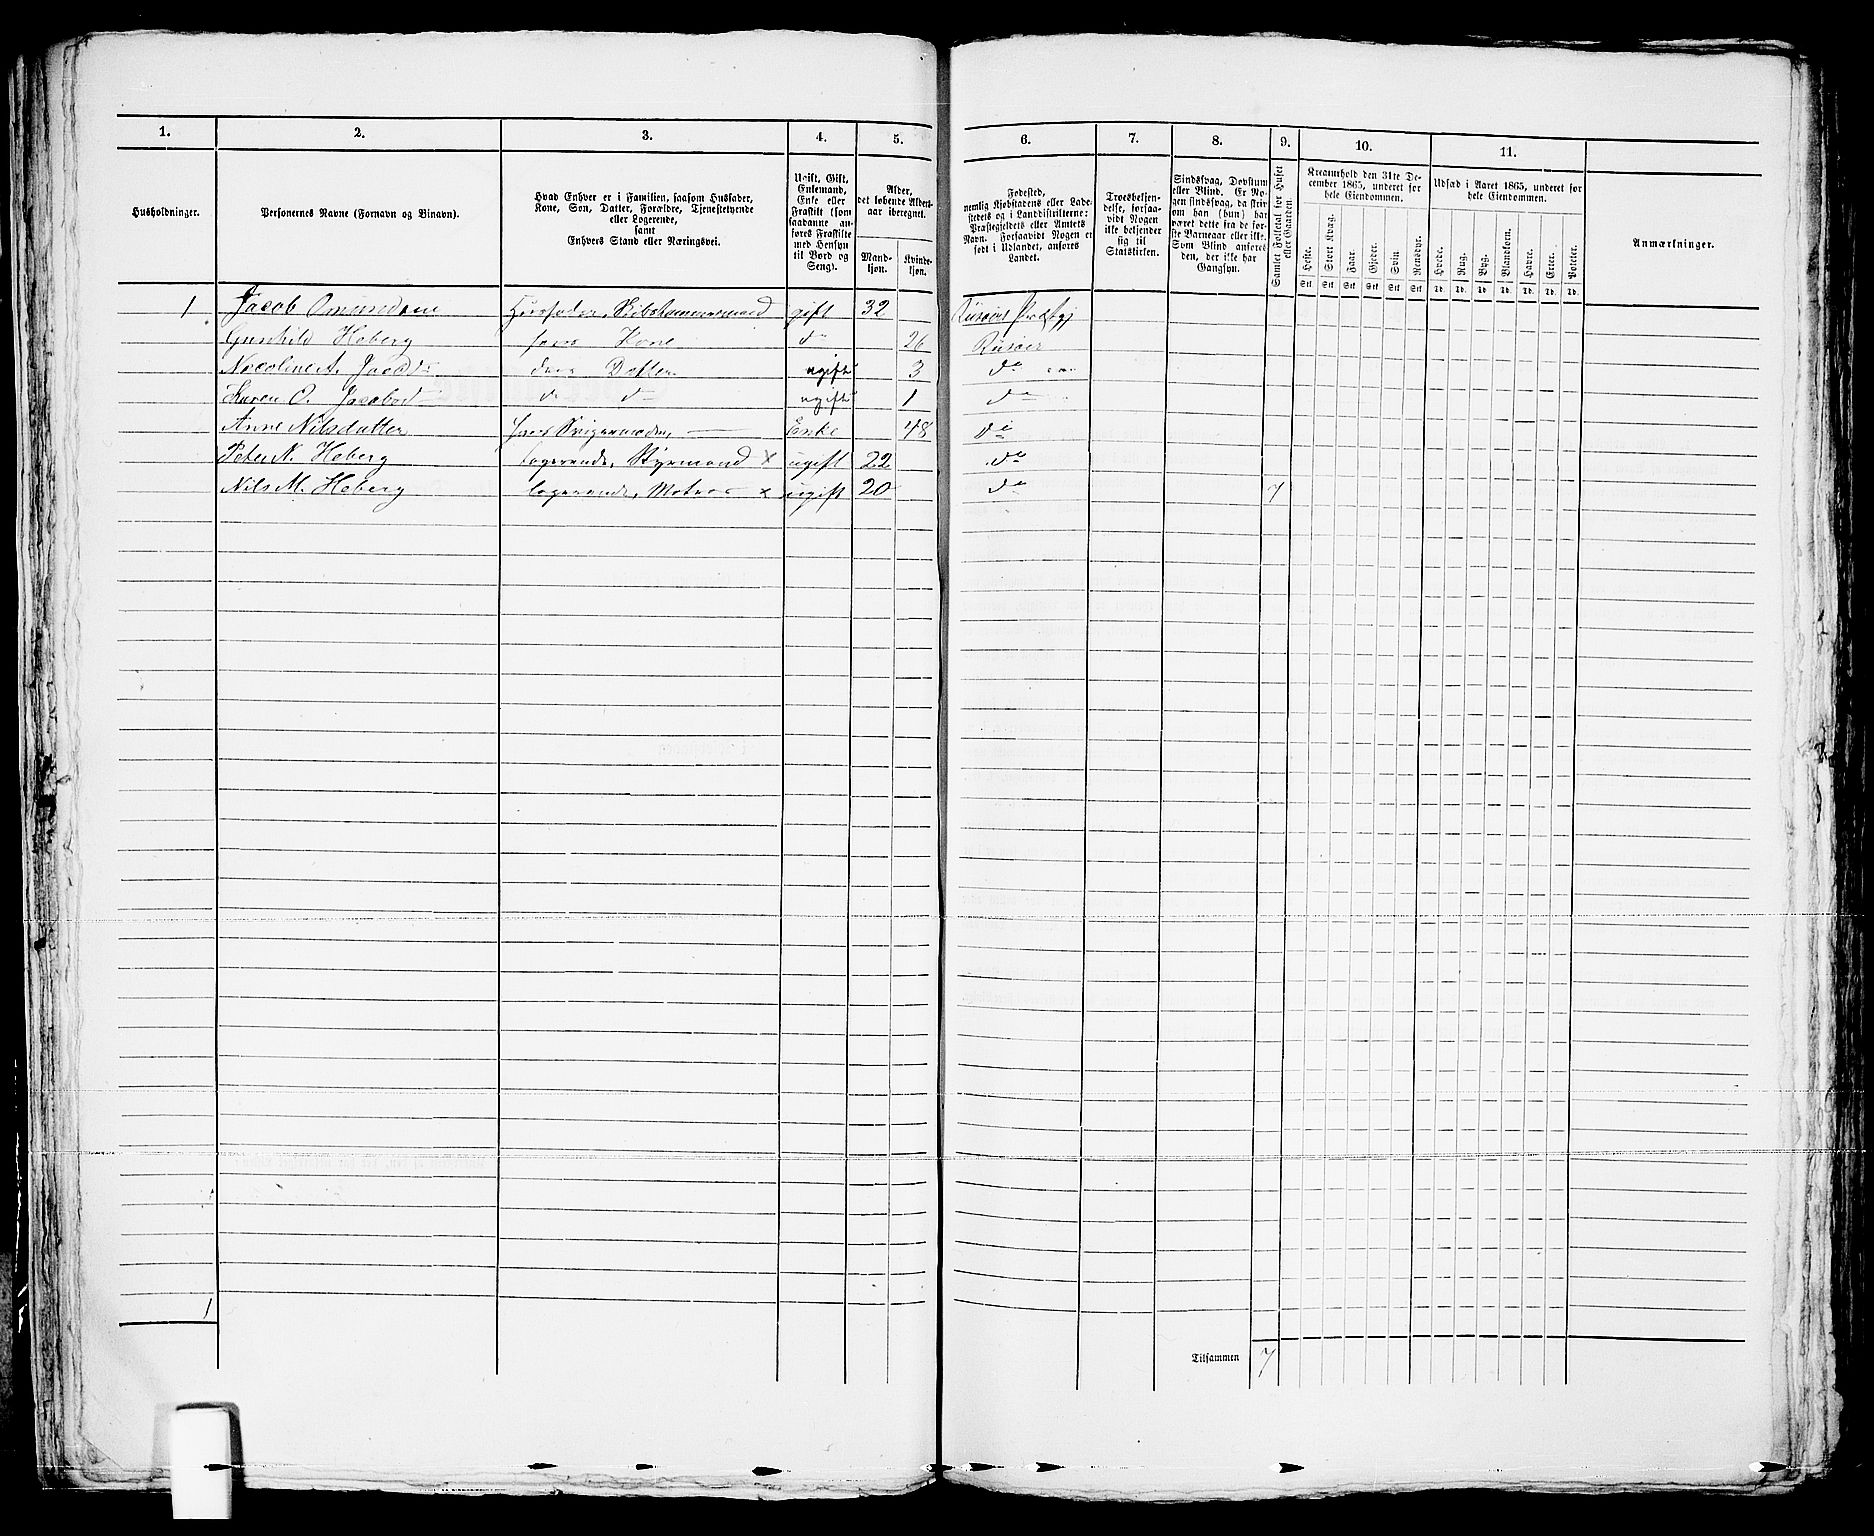 1. 2. 3. 4. 5. 6. 7. 8. 9. 10. 11.
Husholdninger.
Personernes Navne (Fornavn og Binavn).
Hvad Enhver er i Familien, saasom Husfader,
Kone, Søn, Datter, Forældre, Tjenestetyende
eller Logerende,
samt
Enhvers Stand eller Næringsvei.
Ugift, Gift,
Enkemand,
Enke eller
Fraskilt (som
saadanne an-
føres Fraskilte
med Hensyn
til Bord og
Seng).
Alder,
det løbende Alders-
aar iberegnet.
Mand-
kjøn.
Kvinde-
kjøn.
Fødested,
nemlig Kjøbstadens eller Lade-
stedets og i Landdistrikterne:
Præstegjeldets eller Amtets
Navn. Forsaavidt Nogen er
født i Udlandet, anføres
Landet.
Troesbekjen-
delse, forsaa-
vidt Nogen
ikke bekjender
sig til
Statskirken.
Sindssvag, Døvstum
eller Blind. Er No-
gen sindssvag, da skri-
ves om han (hun) har
været dette fra de før-
ste Barneaar eller ikke.
Som Blind anføres
den, der ikke har
Gangsyn.
Samlet Folketal for Huset
eller Gaarden.
Kreaturhold den 31te De-
cember 1865, underet for
hele Eiendommen.
Heste. Stort Kvæg. Faar. Gjeder. Svin Rensdyr.
Stk Stk Stk Stk Stk Stk
Udsæd i Aaret 1865, underet for
hele Eiendommen.
Hvede. Rug. Byg. Blandkorn. Havre. Erter. Poteter.
Td. Td. Td. Td. Td. Td. Td.
Anmærkninger.
1 Jacob Omundsen Husfader, Skibstømmermand gift 32 Risøers Præstgj
Gunhild Heberg hans Kone do 26 Risøer
Nicoline A. deres Datter ugift 3 do
Karen O. Jacobsd do do ugift 1 do
Anne Nilsdatter hans Svigermoder, Enke 48 do
Peter N. Heberg logerende, Styrmand x ugift 22 do
Nils M. Heberg logerende, Matros x ugift 20 do 7
1
Tilsammen 7